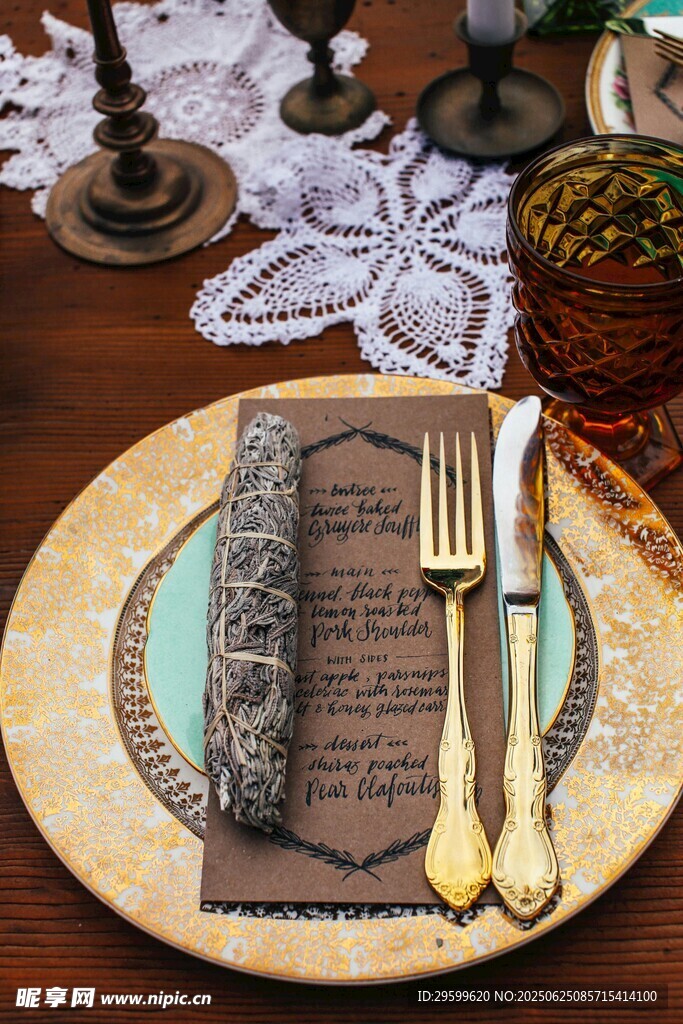 entree
twice baked
Gruyere Souffl
main
ennel, black pepp
lemon roasted
Pork Shoulder
WITH SIDES
ast apple, parsnips
celeriac with rosemar
lt & honey glazed carr
dessert
shiraz poached
Pear Clafoutis
昵享网 www.nipic.cn
ID:29599620 NO:20250625085715414100